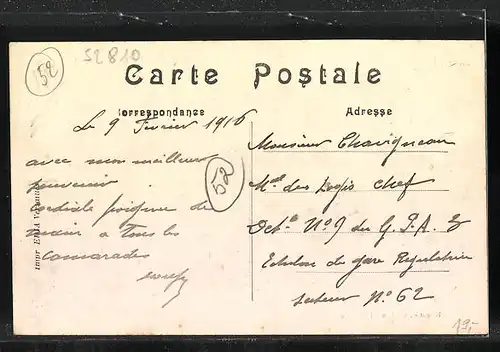 52
52810
Carte Postale
Correspondance
Adresse
Le 9 Février 1916
avec mon meilleur
souvenir
cordiale poignée de
main a tous les
camarades
52
Monsieur Chavigneau
Mal des Logis chef
N°9 du G.P.A. 3
Echelon de gare Régulatrice
Secteur N°62
Impr
19,-